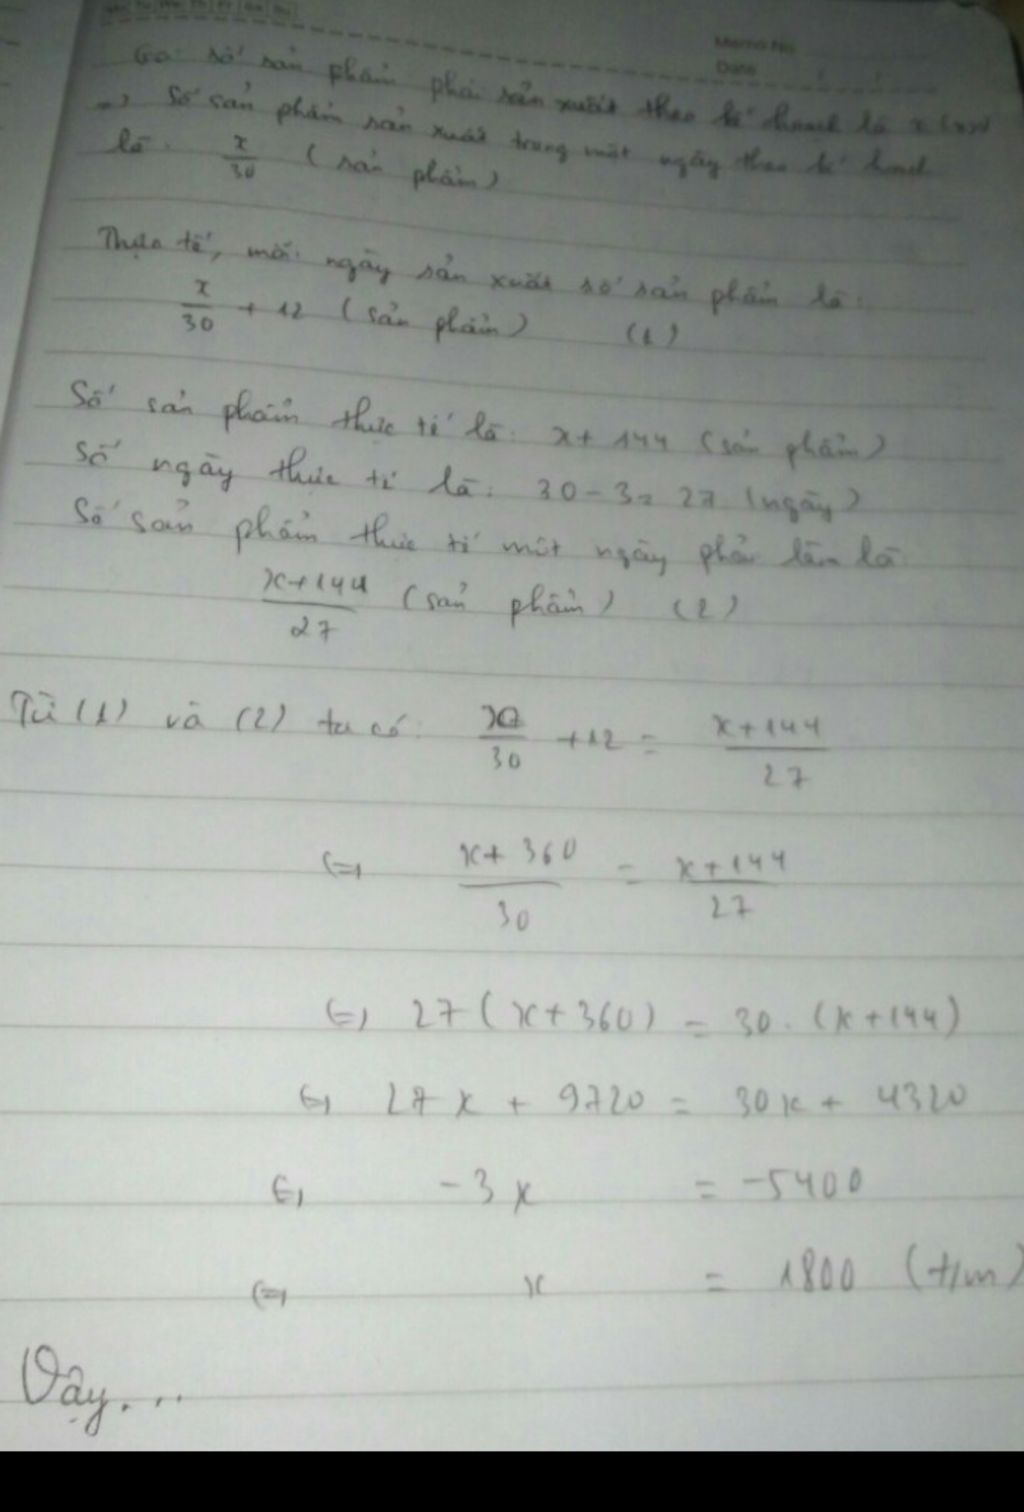 Memo No.
Date
Gọi số sản phẩm phải sản xuất theo kế hoạch là x
=> Số sản phẩm sản xuất trong một ngày theo kế hoạch
là: x/30 (sản phẩm)
Thực tế, mỗi ngày sản xuất số sản phẩm là:
x/30 + 12 (sản phẩm) (1)
Số sản phẩm thực tế là: x + 144 (sản phẩm)
Số ngày thực tế là: 30 - 3 = 27 (ngày)
Số sản phẩm thực tế một ngày phải làm là
x+144/27 (sản phẩm) (2)
Từ (1) và (2) ta có: x/30 + 12 = x+144/27
<=> x+360/30 = x+144/27
<=> 27(x+360) = 30.(x+144)
<=> 27x + 9720 = 30x + 4320
<=> -3x = -5400
<=> x = 1800 (t/m)
Vậy...